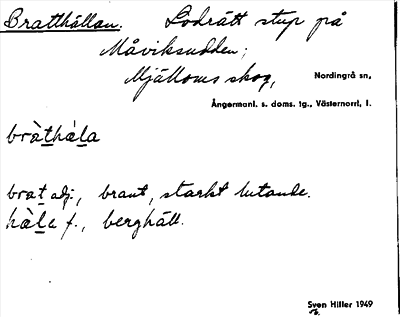 Bratthällan. Lodrätt stup på
Måviksudden;
Mjälloms skog, Nordingrå sn,
Ångermanl. s. doms. tg., Västernorrl. l.
bràthàla
brat adj., brant, starkt lutande.
hàla f., berghäll.
Sven Hiller 1949